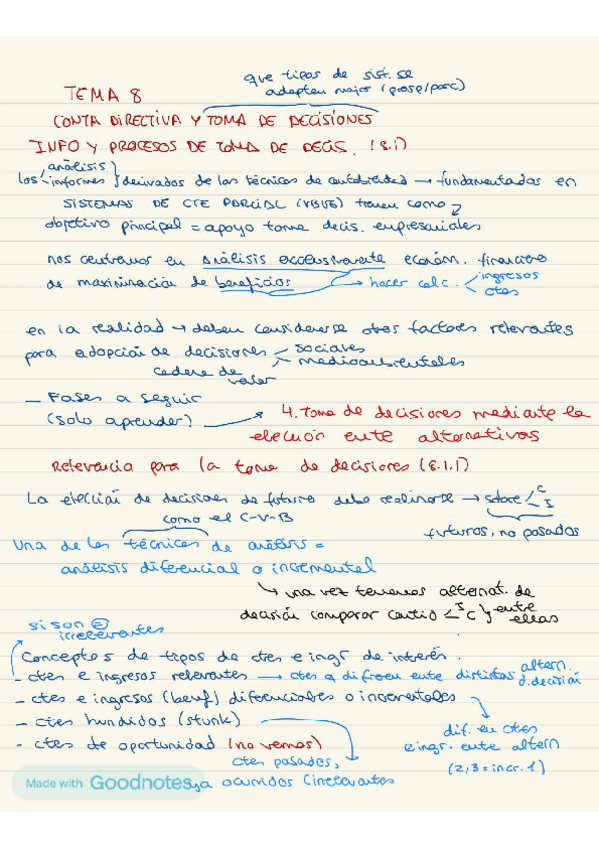 que tipos de sist. se
adapten mejor (prosp/parc)
TEMA 8
CONTA DIRECTIVA Y TOMA DE DECISIONES
INFO Y PROCESOS DE TOMA DE DECIS. (8.1)
análisis
los informes } derivados de las técnicas de contabilidad → fundamentadas en
SISTEMAS DE CTE PARCIAL (VBVB) tienen como
objetivo principal = apoyo toma decis. empresariales
nos centramos en análisis exclusivamente económ. financiero
de maximización de beneficios → hacer calc. < ingresos
ctes
en la realidad → deben considerarse otros factores relevantes
para adopción de decisiones < sociales
medioambientales
cadena de
valor
- Fases a seguir
(solo aprender) → 4. Toma de decisiones mediante la
elección ente alternativas
Relevancia para la toma de decisiones (8.1.1)
La elección de decisiones de futuro debe realizarse → sobre < C
I
como el C-V-B
futuros, no pasados
Una de las técnicas de análisis =
análisis diferencial o incremental
↳ una vez tenemos alternat. de
decisión comparar cantid < I C } entre
ellas
si son =
irrelevantes
Conceptos de tipos de ctes e ingr de interés.
- ctes e ingresos relevantes → ctes q difieren ente distintas altern.
d. decisión
- ctes e ingresos (benef) diferenciales o incrementales
- ctes hundidos (stunk)
dif. en ctes
- ctes de oportunidad (no vemos)
e ingr. ente altern
(2,3 = incr. 1)
ctes pasados,
ya ocurridos (irrelevantes
Made with Goodnotes